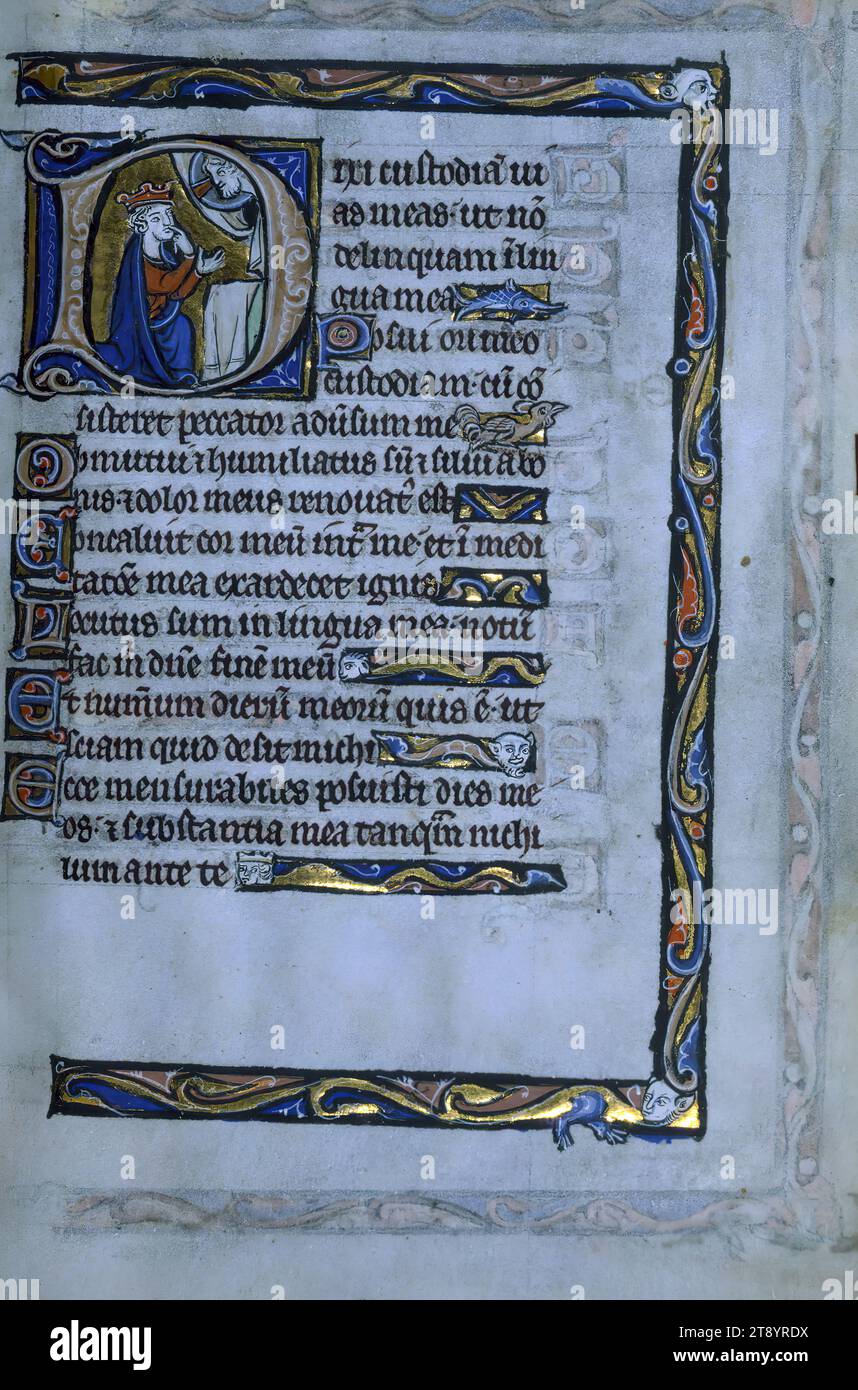 Dixi custodiā ui
as meas · ut nō
delinquam ī lin
gua mea
Posui ori meo
custodiam · cū cō
sisteret peccator aduˀsum me
Obmutui ⁊ humiliatus sū ⁊ silui a bo
nis · ⁊ dolor meus renouatˀ est
Concaluit cor meū intᵃ me · et ī medi
tatōe mea exardecet ignis
Locutus sum in lingua mea · notū
fac m̄ dn̄e finē meū
Et num̄um dierū meorū quis ē · ut
sciam quid desit michi
Ecce mensurabiles posuisti dies me
os · ⁊ substantia mea tanqᵃm nichi
lum ante te
alamy
Image ID: 2T8YRDX
www.alamy.com